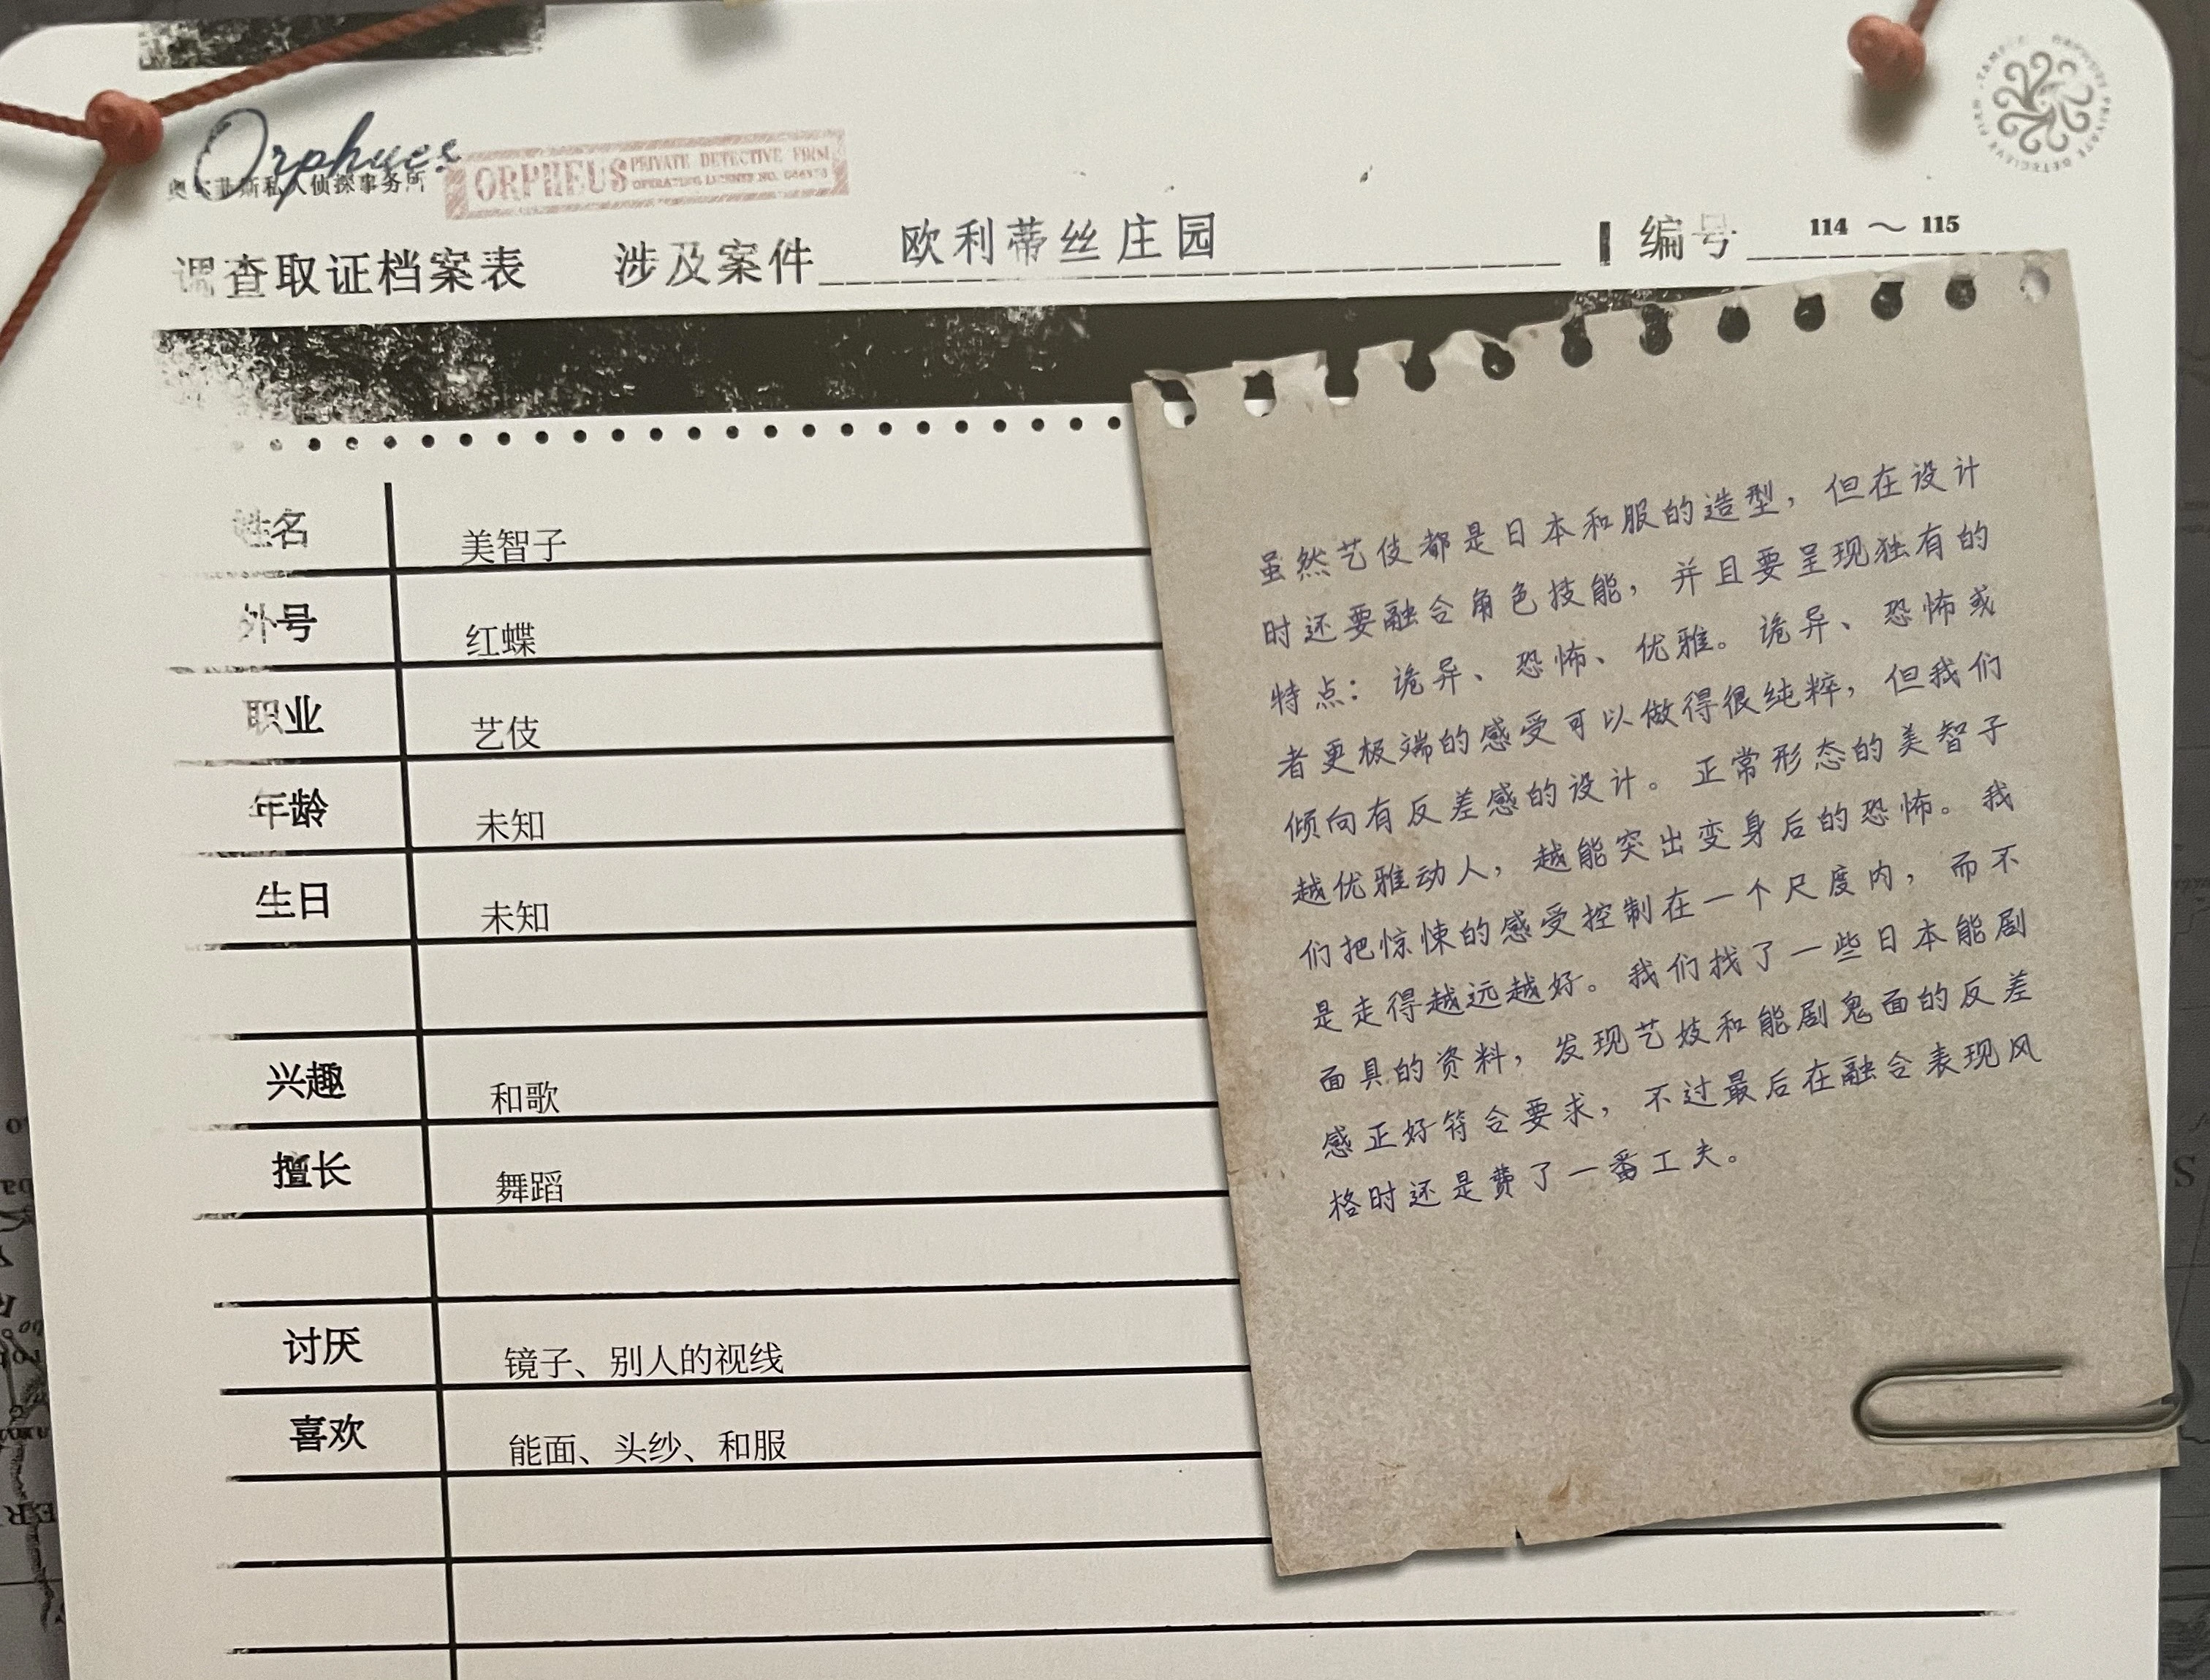 Orpheus
奥尔菲斯私人侦探事务所
ORPHEUS PRIVATE DETECTIVE FIRM
OPERATING LICENSE NO.
调查取证档案表 涉及案件 欧利蒂丝庄园 编号 114 ～ 115
姓名 美智子
外号 红蝶
职业 艺伎
年龄 未知
生日 未知
兴趣 和歌
擅长 舞蹈
讨厌 镜子、别人的视线
喜欢 能面、头纱、和服
虽然艺伎都是日本和服的造型，但在设计
时还要融合角色技能，并且要呈现独有的
特点：诡异、恐怖、优雅。诡异、恐怖或
者更极端的感受可以做得很纯粹，但我们
倾向有反差感的设计。正常形态的美智子
越优雅动人，越能突出变身后的恐怖。我
们把惊悚的感受控制在一个尺度内，而不
是走得越远越好。我们找了一些日本能剧
面具的资料，发现艺妓和能剧鬼面的反差
感正好符合要求，不过最后在融合表现风
格时还是费了一番工夫。